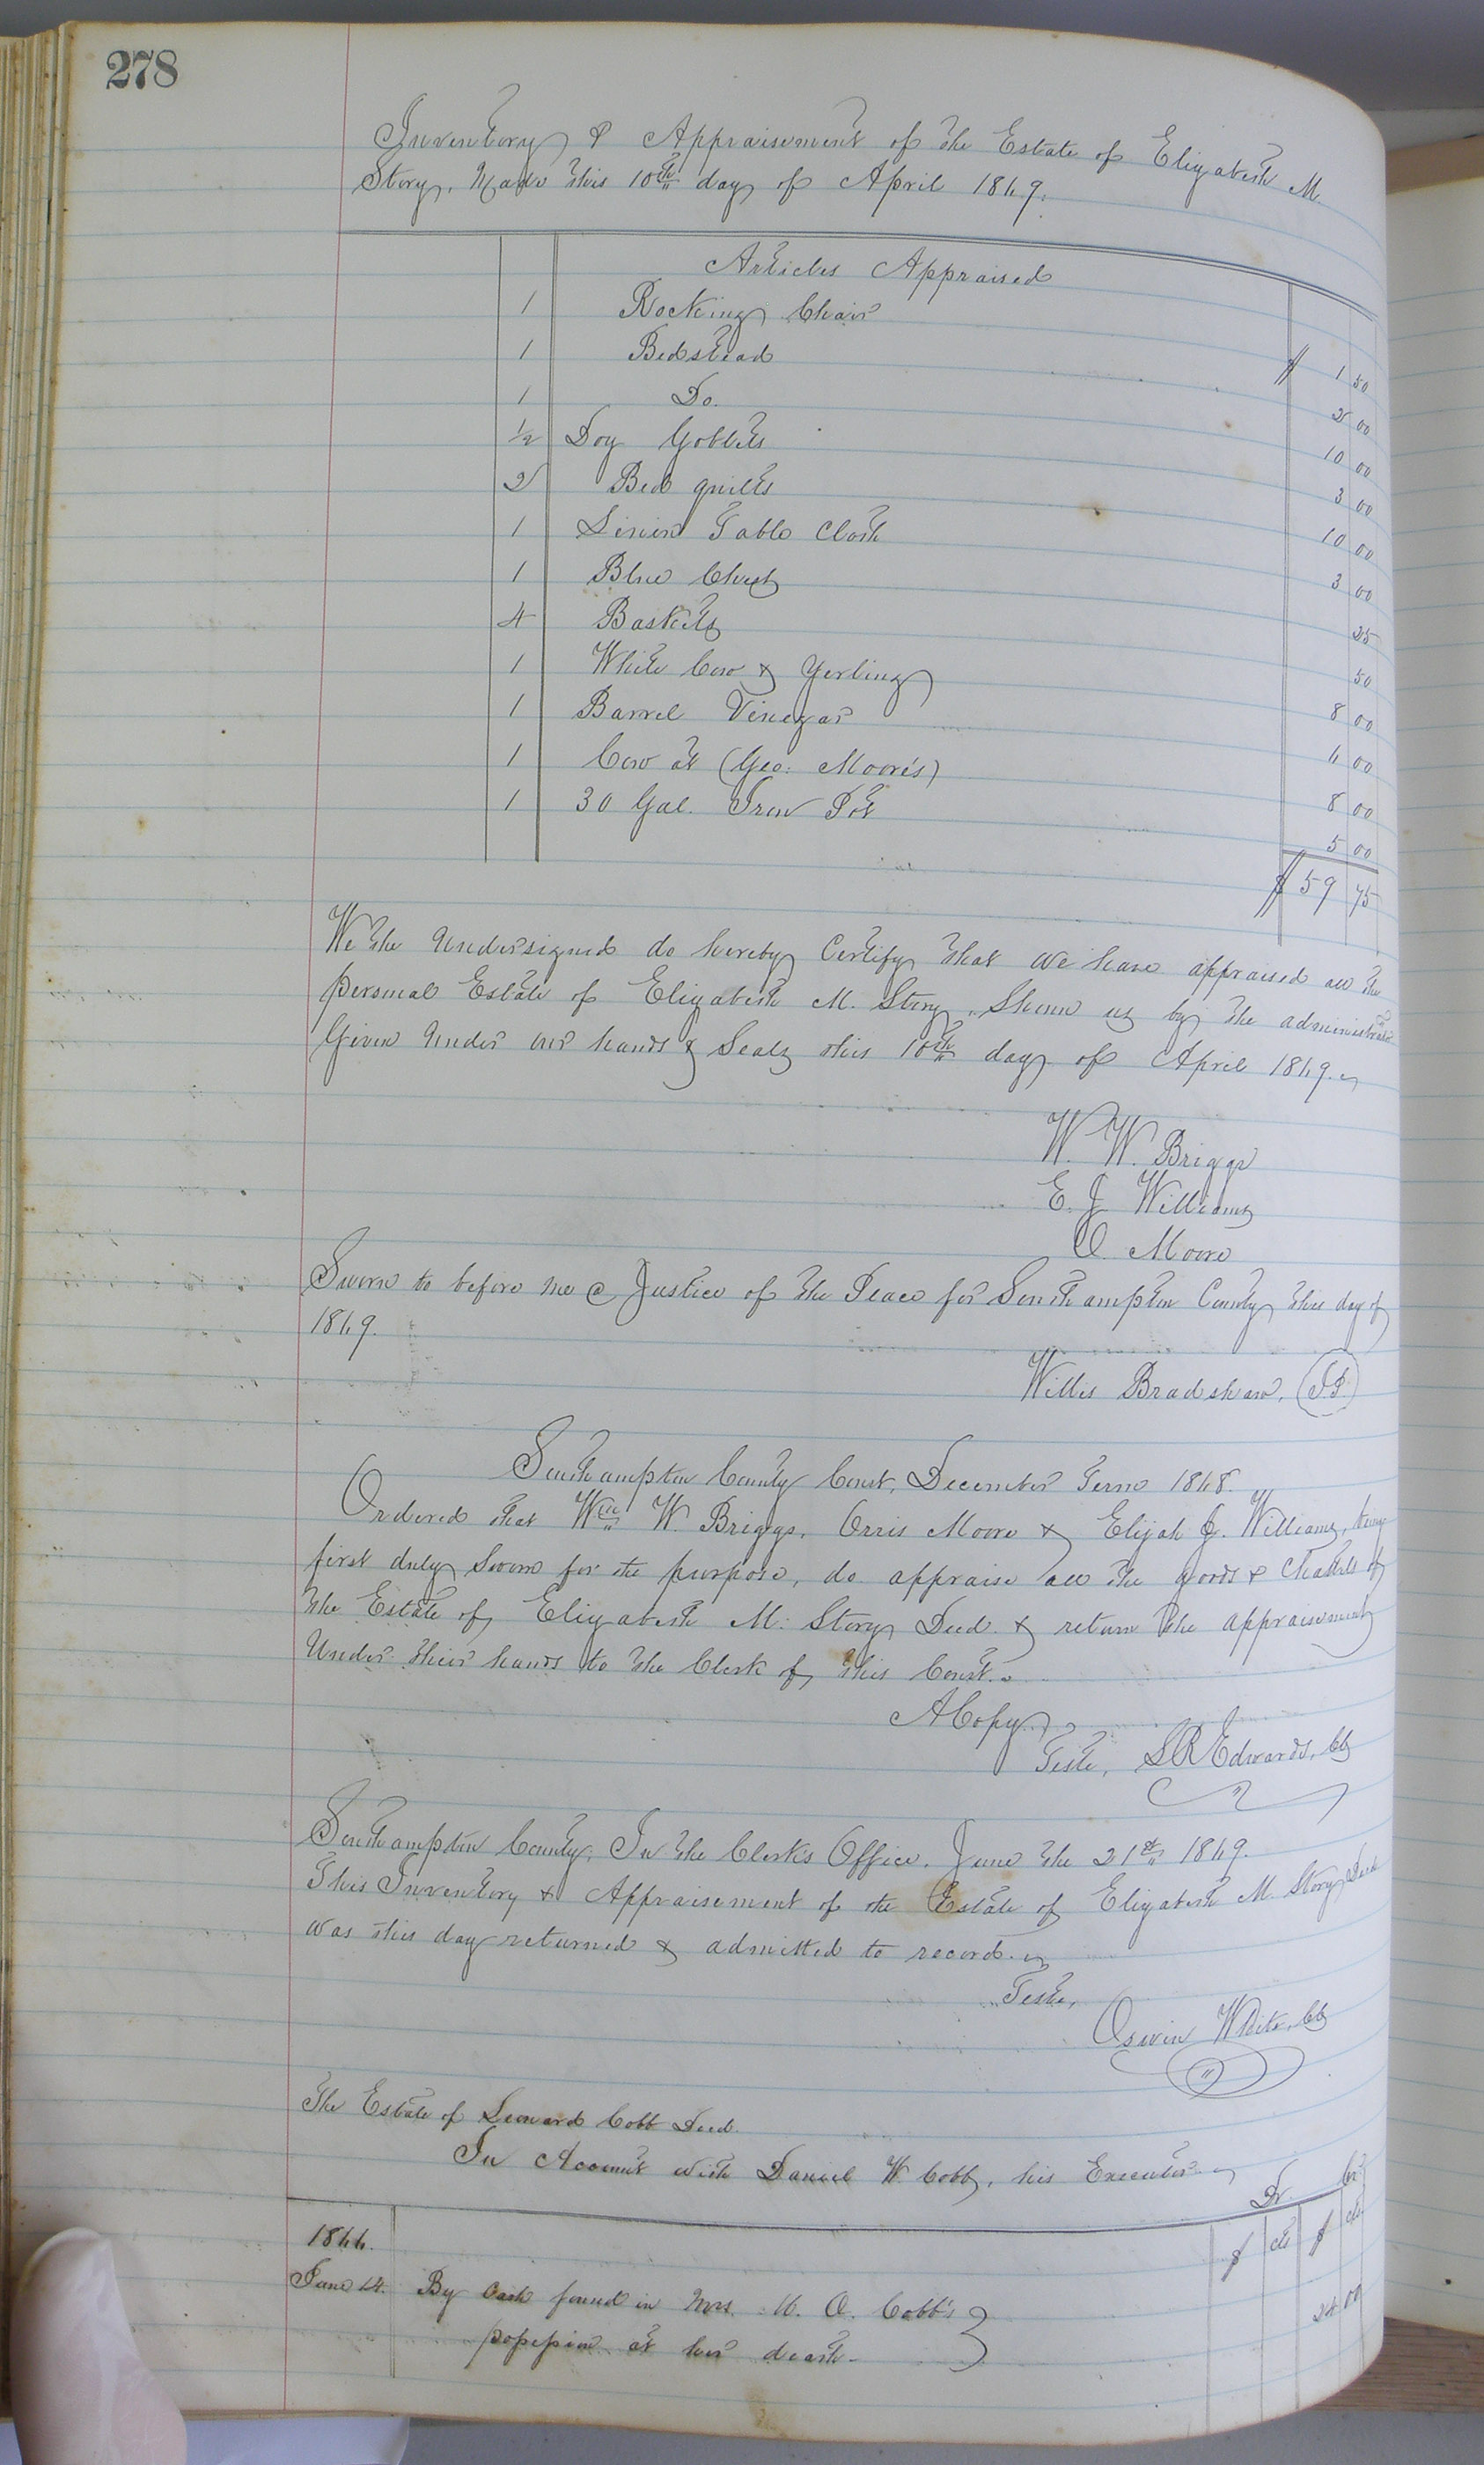 278
Inventory & Appraisement of the Estate of Elizabeth M.
Story, Made this 10th day of April 1869.
Articles Appraised
1 Rocking Chair $ 1 50
1 Bedstead 2 00
1 Do. 10 00
1/2 Doz Gobblets 3 00
2 Bed quilts 10 00
1 Linen Table Cloth 3 00
1 Blue Chest 25
4 Baskets 50
1 White Cow & Yerling 8 00
1 Barrel Vinegar 6 00
1 Cow at (Geo: Moore's) 8 00
1 30 Gal. Iron Pot 5 00
$ 59 75
We the Undersigned do hereby Certify that we have appraised all the
personal Estate of Elizabeth M. Story, Shown us by the administrator
Given Under our hands & Seals this 10th day of April 1869.
W. W. Briggs
E. J. Williams
O. Moore
Sworn to before me a Justice of the Peace for Southampton County this day of
1869.
Willis Bradshaw, J.P.
Southampton County Court, December Term 1868.
Ordered that Wm W. Briggs, Orris Moore & Elijah J. Williams, being
first duly Sworn for the purpose, do appraise all the goods & Chattels of
the Estate of Elizabeth M. Story Decd. & return the appraisement
Under their hands to the Clerk of this Court.
A Copy,
Teste, L R Edwards, Clk
Southampton County, In the Clerk's Office, June the 21st 1869.
This Inventory & Appraisement of the Estate of Elizabeth M. Story Decd
was this day returned & admitted to record.
Teste,
Oswin White, Clk
The Estate of Leonard Cobb Decd.
In Account with Daniel W. Cobb, his Executor Dr. Cr.
1866. $ cts $ cts
June 14. By Cash found in Mrs. A. Cobb's
possession at her death - 24 00